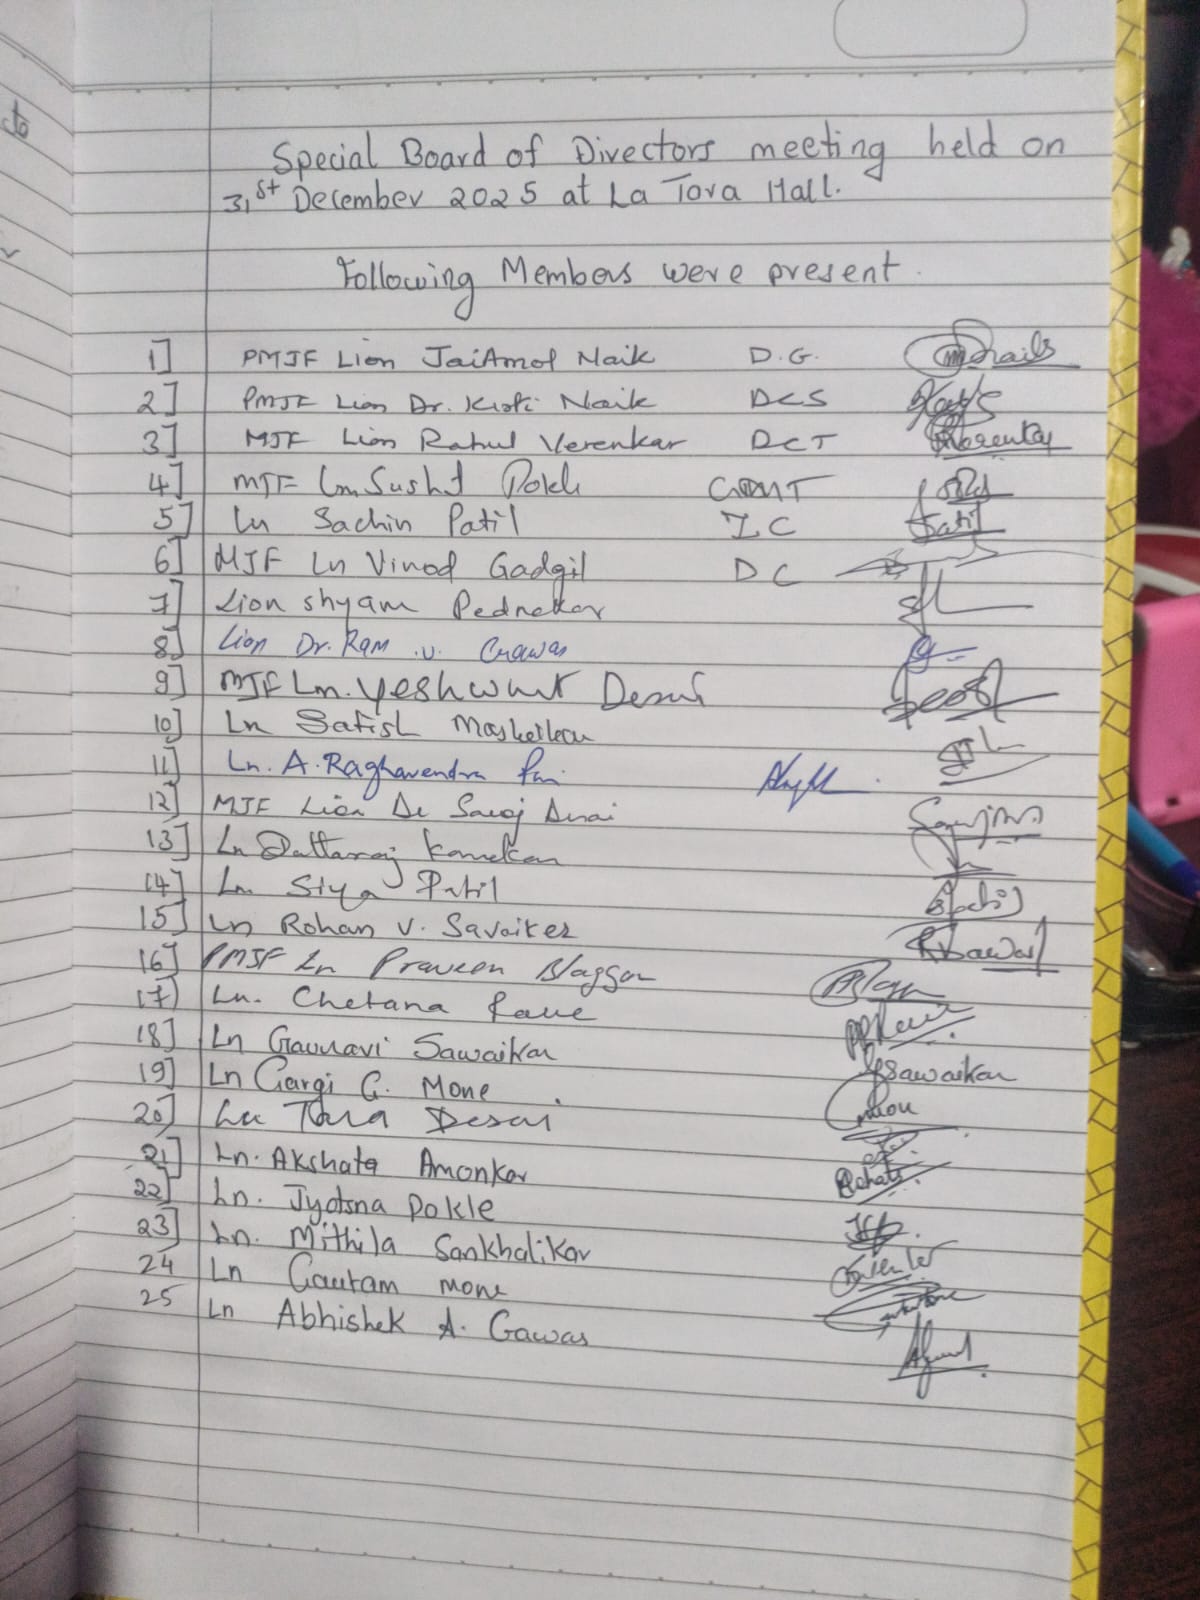 to
Special Board of Directors meeting held on
31st December 2025 at La Tora Hall.
Following Members were present.
1] PMJF Lion JaiAmol Naik D.G.
2] PMJF Lion Dr. Kirti Naik DCS
3] MJF Lion Rahul Verenkar DCT
4] MJF Ln Sushil Pokle GMT
5] Ln Sachin Patil ZC
6] MJF Ln Vinod Gadgil DC
7] Lion Shyam Pednekar
8] Lion Dr. Ram .v. Gawas
9] MJF Ln. Yeshwant Desai
10] Ln Satish
11] Ln. A. Raghavendra Pai
12] MJF Lion Dr Saroj Desai
13] Ln Dattaraj Kamekar
14] Ln. Siya Patil
15] Ln Rohan V. Savaiker
16] PMJF Ln Praveen Blaggan
17] Ln. Chetana Raue
18] Ln Gauravi Sawaikar Sawaikar
19] Ln Gargi G. Mone
20] Ln Tara Desai
21] Ln. Akshata Amonkar
22] Ln. Jyotsna Pokle
23] Ln. Mithila Sankhalikar
24 Ln Gautam Mone
25 Ln Abhishek A. Gawas